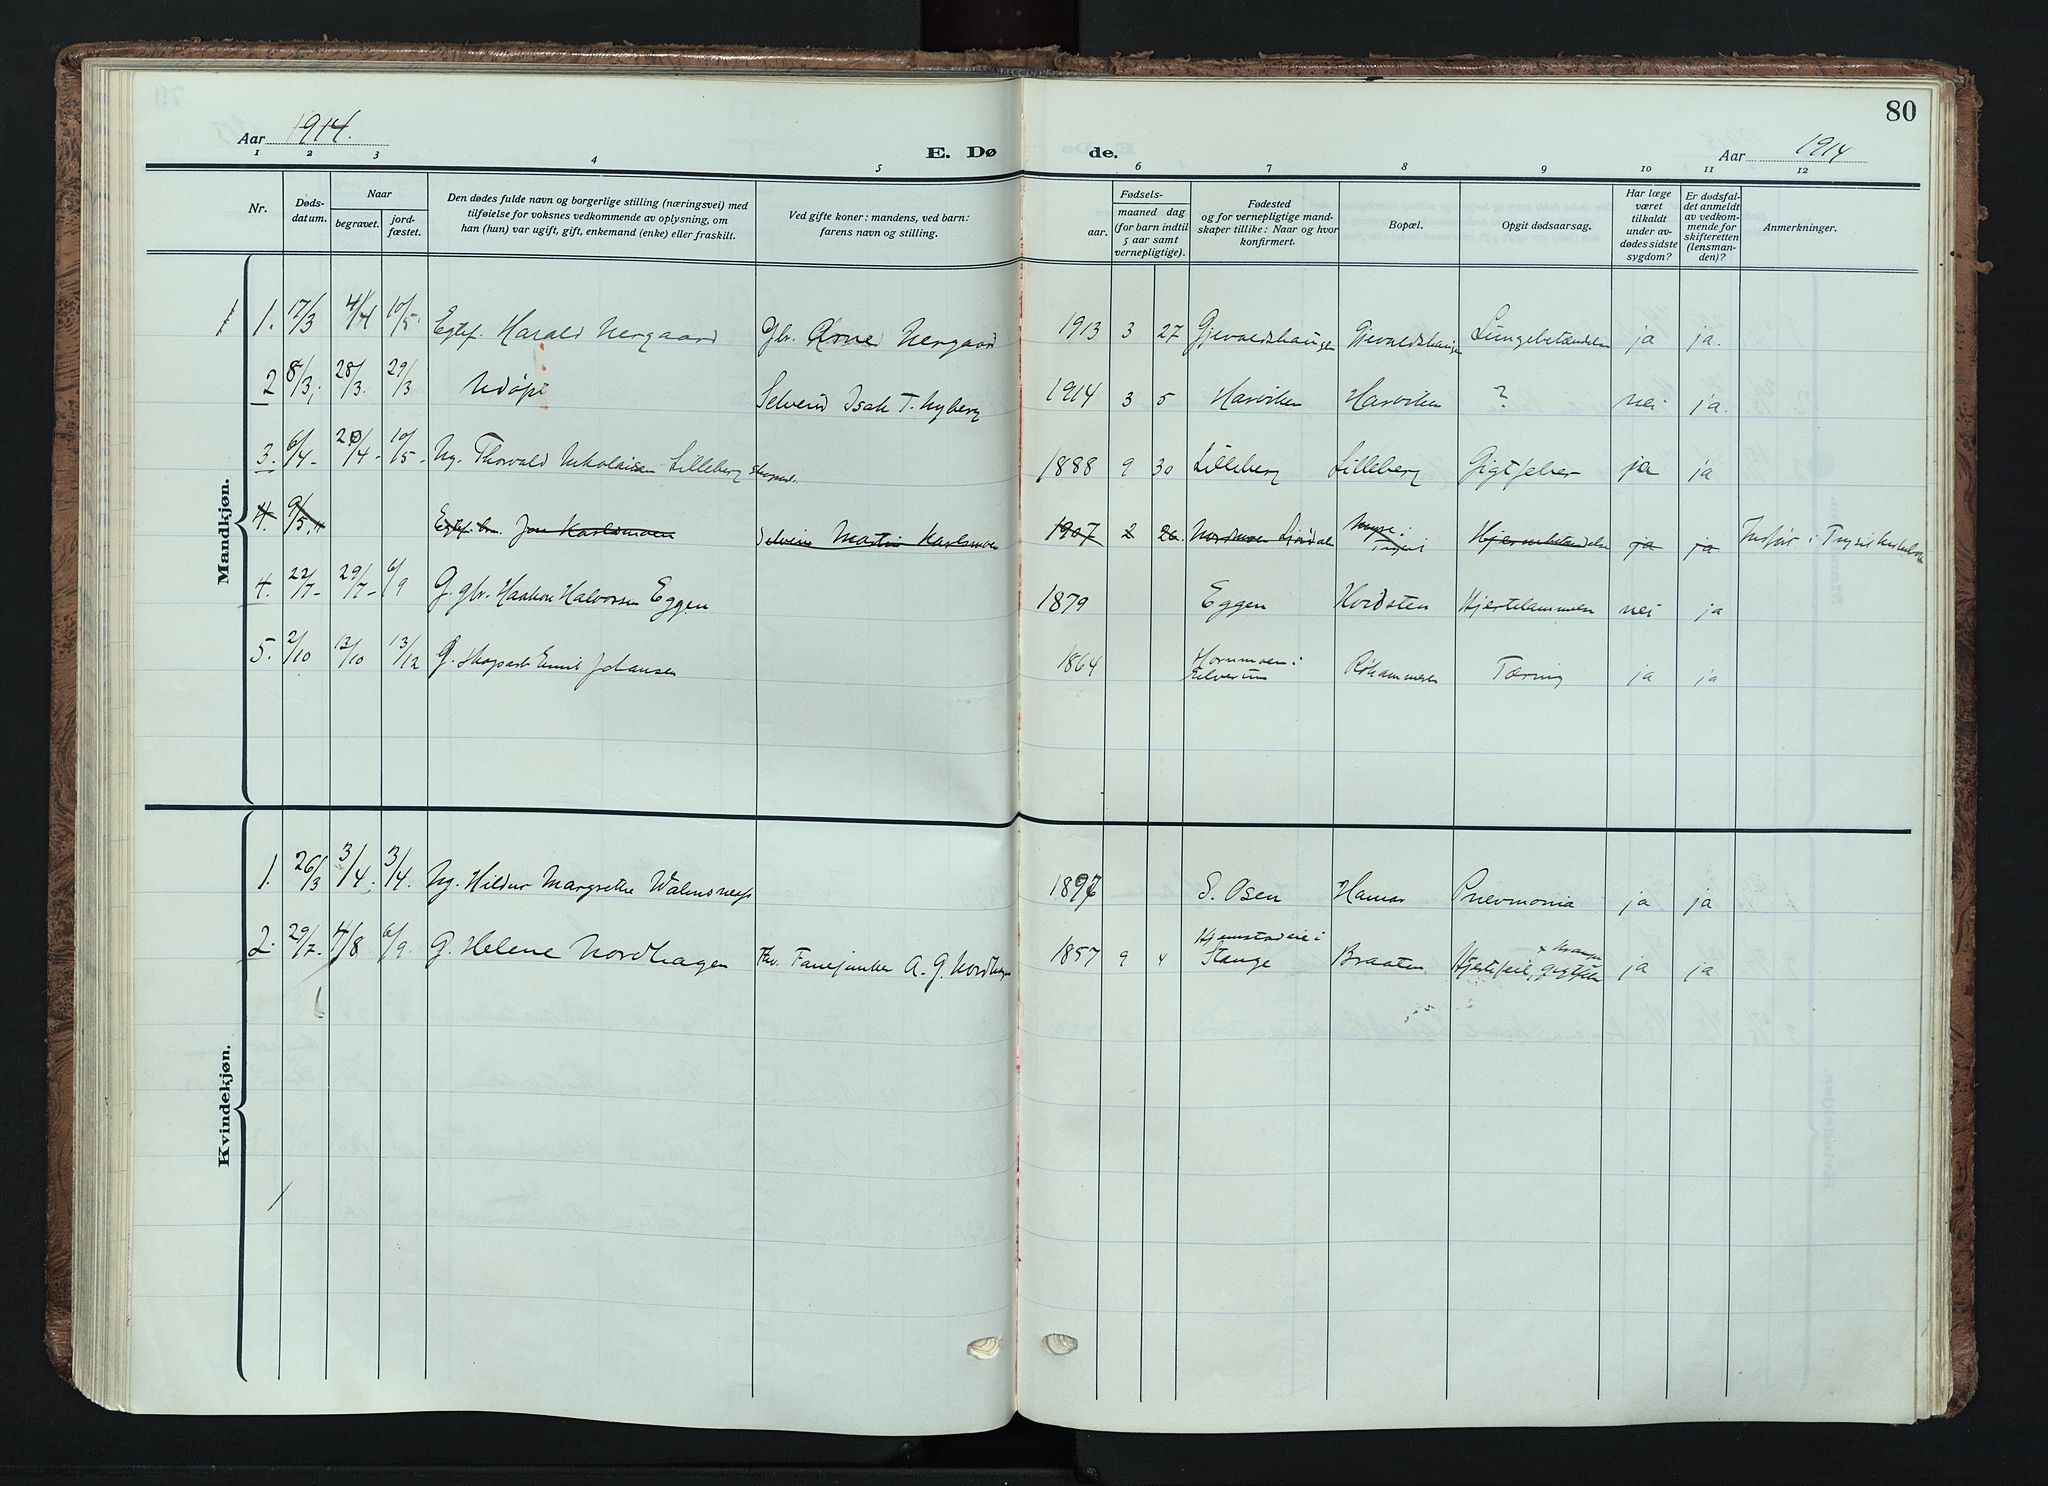 80
Aar 1914.
E. Dø de.
Aar 1914
1 2 3 4 5 6 7 8 9 10 11 12
Nr.
Døds-
datum.
Naar
begravet.
jord-
fæstet.
Den dødes fulde navn og borgerlige stilling (næringsvei) med
tilføielse for voksnes vedkommende av oplysning, om
han (hun) var ugift, gift, enkemand (enke) eller fraskilt.
Ved gifte koner: mandens, ved barn:
farens navn og stilling.
Fødsels-
aar.
maaned dag
(for barn indtil
5 aar samt
vernepligtige).
Fødested
og for vernepligtige mand-
skaper tillike: Naar og hvor
konfirmert.
Bopæl.
Opgit dødsaarsag.
Har læge
været
tilkaldt
under av-
dødes sidste
sygdom?
Er dødsfal-
det anmeldt
av vedkom-
mende for
skifteretten
(lensman-
den)?
Anmerkninger.
Mandkjøn.
1 1. 17/3 4/4 10/5. Egtef. Harald Nergaard Gbr. Arne Nergaard 1913 3 27 Gjevaldshaugen Gjevaldshaugen Lungebetændelse ja ja.
2 8/3; 28/3. 29/3 Udøpt Selveier Isak T. Nyberg 1914 3 5 Harviken Harviken ? nei ja.
3. 6/4- 20/4- 10/5- Ug. Thorvald Nikolaisen Lilleberg skogsarb. 1888 9 30 Lilleberg Lilleberg Gigtfeber ja ja
4. 9/5. Egtef. Jon Karlsmoen Selveier Martin Karlsmoen 1907 2 26. Nordmoen Ljørdal Hjernebetændelse ja ja Indført i Trysil
4. 22/7- 29/7- 6/9 G. gbr. Haakon Halvorsen Eggen 1879 Eggen Nordsten Hjertelammelse nei ja
5. 2/10 13/10 13/12 G. skogsarb. Emil Johansen 1864 Hornmoen i
Elverum Røhammeren Tæring ja ja
Kvindekjøn.
1. 26/3 3/4; 3/4. Ug. Hildur Margrethe 1897 S. Osen Hamar Pnevmonia ja ja
2. 29/7- 4/8 6/9. G. Helene Nordhagen Fhv. Fanejunker A. G. Nordhagen 1857 9 4 Hjemstadeie i
Stange Braaten Hjertefeil, ja ja